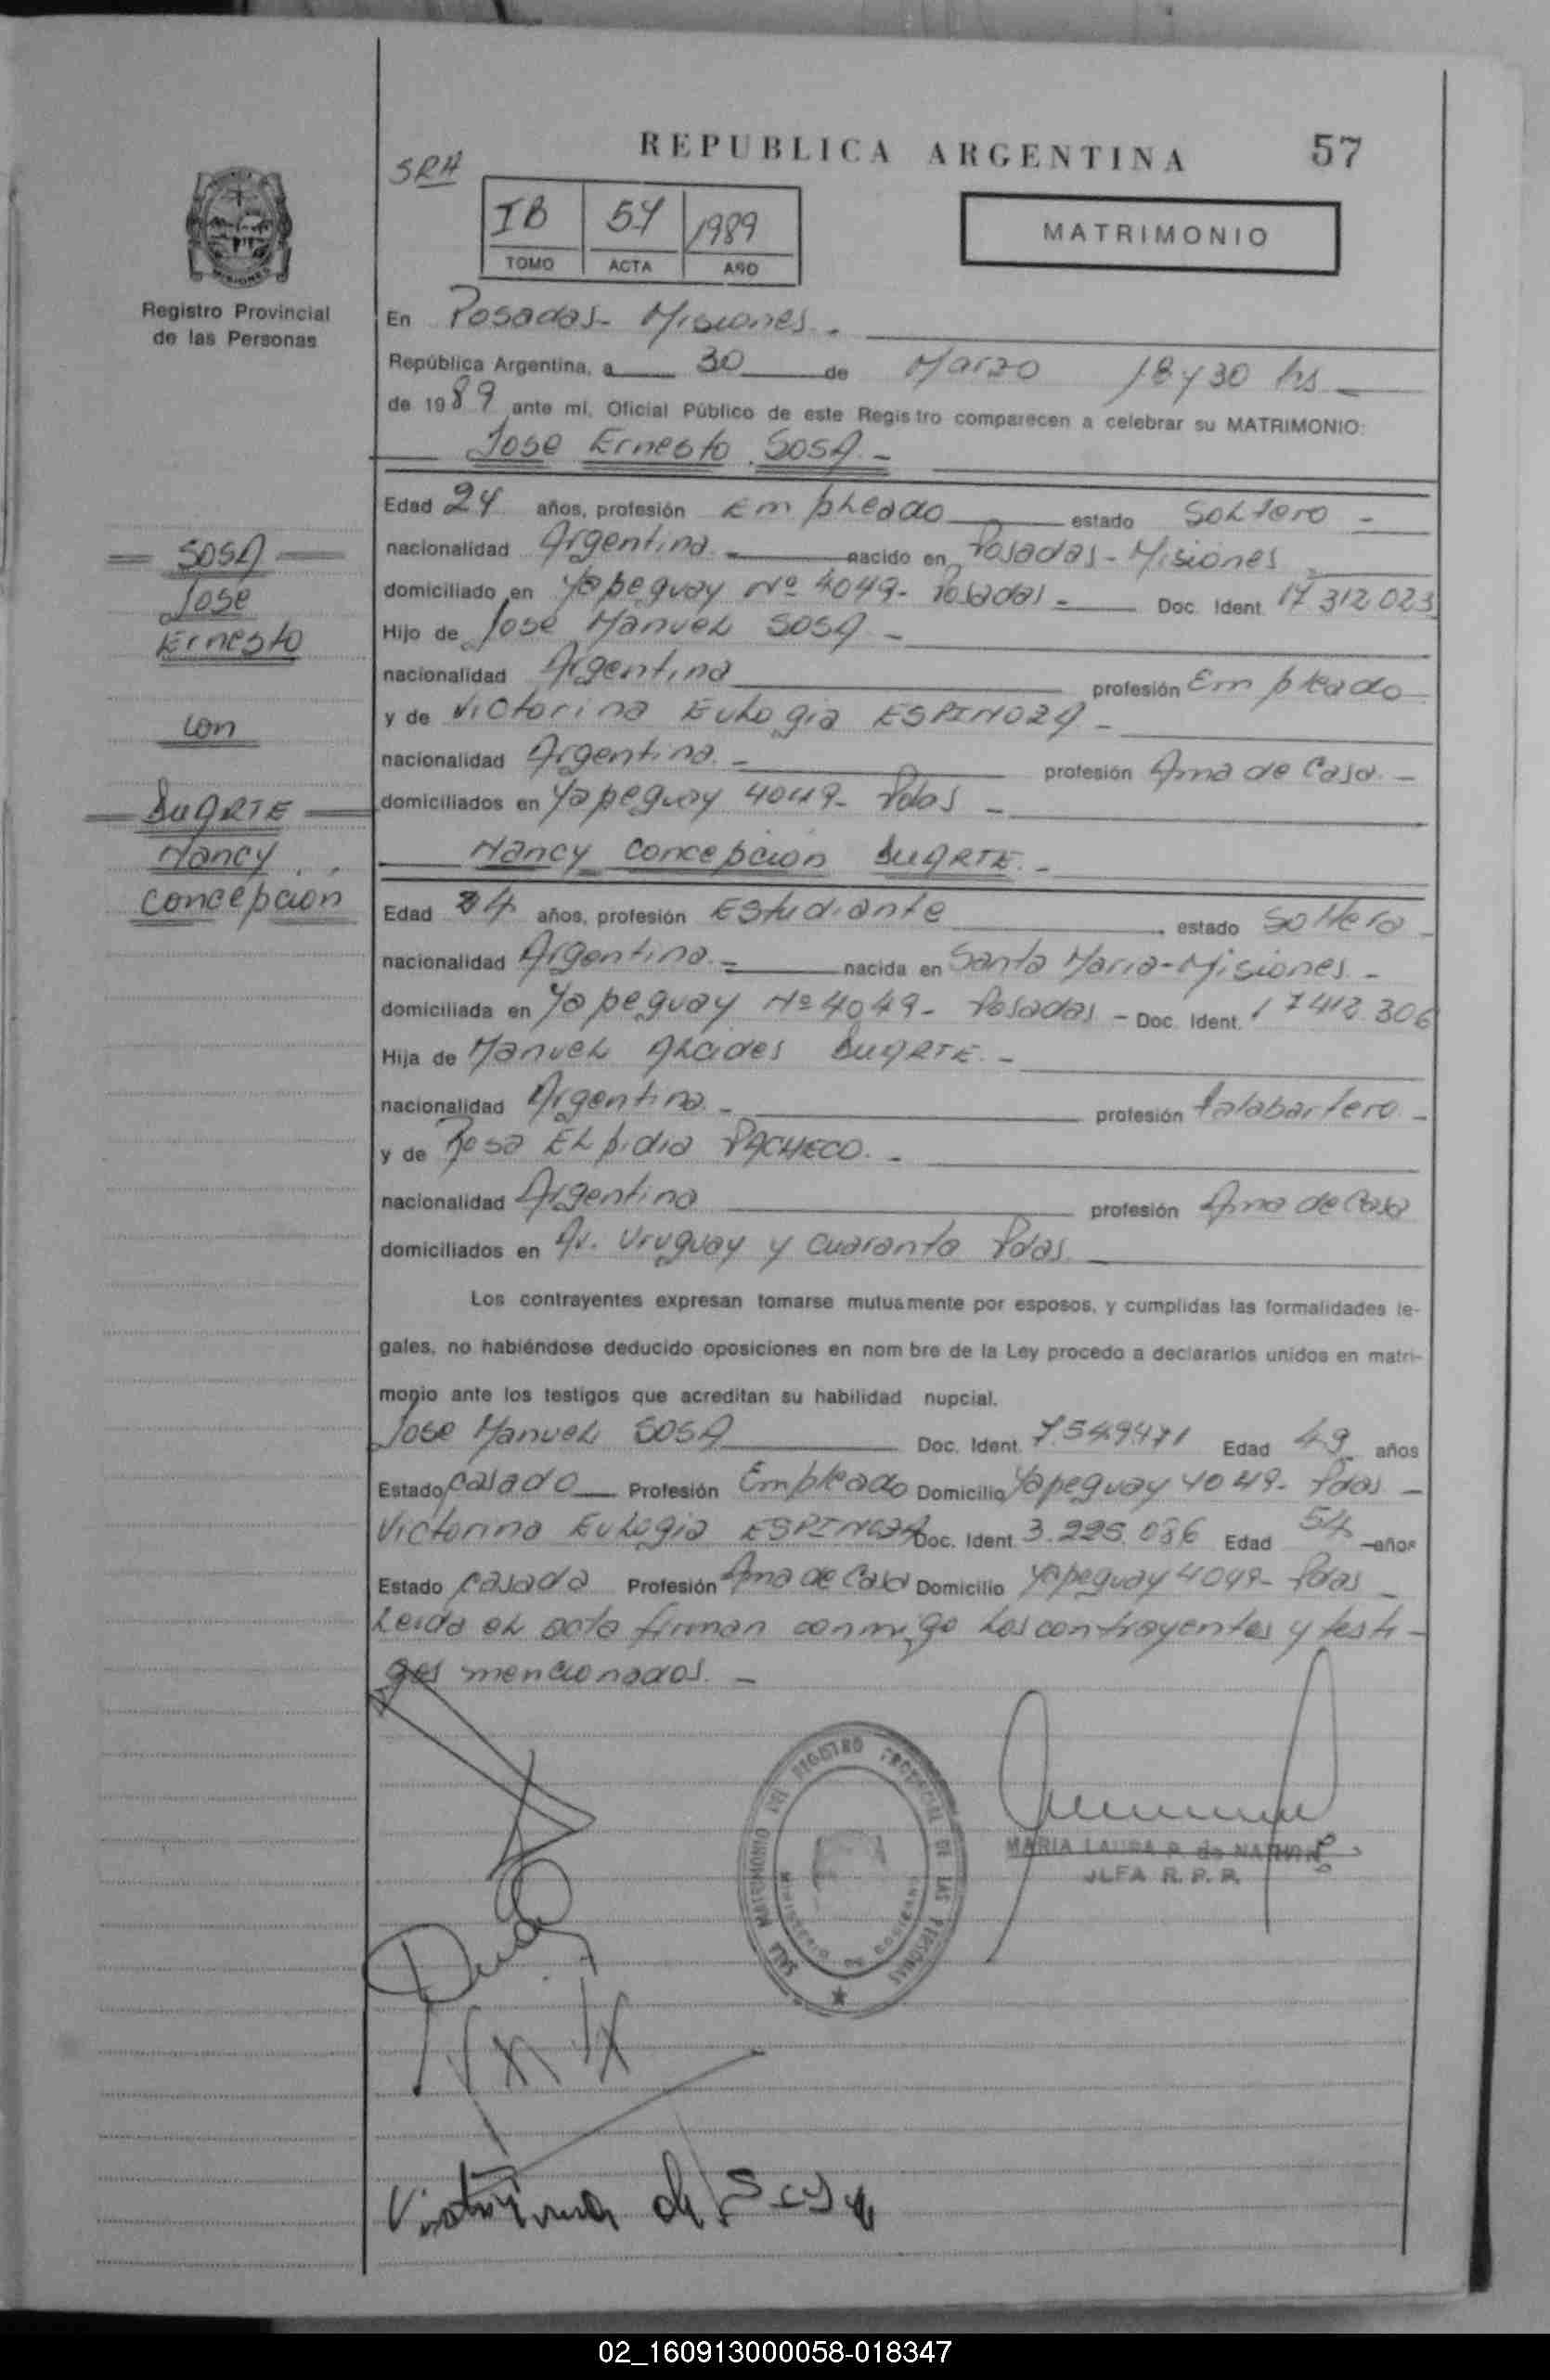 REPUBLICA ARGENTINA
57
SRA
IB 54 1989
TOMO ACTA AÑO
MATRIMONIO
MISIONES
Registro Provincial
de las Personas
En Posadas- Misiones.
República Argentina, a 30 de Marzo 18 y 30 hs
de 1989 ante mi, Oficial Público de este Registro comparecen a celebrar su MATRIMONIO:
Jose Ernesto SOSA.-
Edad 24 años, profesión Empleado estado Soltero -
nacionalidad Argentina.- nacido en Posadas- Misiones
domiciliado en Yapeguay Nº 4049- Posadas - Doc. Ident. 17 312 023
Hijo de Jose Manuel SOSA -
nacionalidad Argentina profesión Empleado
y de Victorina Eulogia ESPINOZA -
nacionalidad Argentina. - profesión Ama de Casa. -
domiciliados en Yapeguay 4049- Pdas -
SOSA
Jose
Ernesto
con
DUARTE
Nancy
Concepcion
Nancy Concepcion DUARTE. -
Edad 24 años, profesión Estudiante estado Soltera -
nacionalidad Argentina.- nacida en Santa Maria-Misiones. -
domiciliada en Yapeguay Nº 4049- Posadas - Doc. Ident. 17412.306
Hija de Manuel Alcides DUARTE. -
nacionalidad Argentina. - profesión talabartero -
y de Rosa Elpidia PACHECO. -
nacionalidad Argentina profesión Ama de Casa
domiciliados en Av. Uruguay y Cuaranta Pdas.
Los contrayentes expresan tomarse mutuamente por esposos, y cumplidas las formalidades le-
gales, no habiéndose deducido oposiciones en nom bre de la Ley procedo a declararlos unidos en matri-
monio ante los testigos que acreditan su habilidad nupcial.
Jose Manuel SOSA Doc. Ident. 7.549471 Edad 49 años
Estado Casado Profesión Empleado Domicilio Yapeguay 4049- Pdas -
Victorina Eulogia ESPINOZA Doc. Ident. 3.225.086 Edad 54 años
Estado Casada Profesión Ama de Casa Domicilio Yapeguay 4049- Pdas -
Leida el acta firman conmigo los contrayentes y testi-
gos mencionados. -
SALA MATRIMONIO DEL REGISTRO PROVINCIAL DE LAS PERSONAS
MINISTERIO DE GOBIERNO
MARIA LAURA P. de
JEFA R.P.P.
Victorina de Sosa
02_160913000058-018347